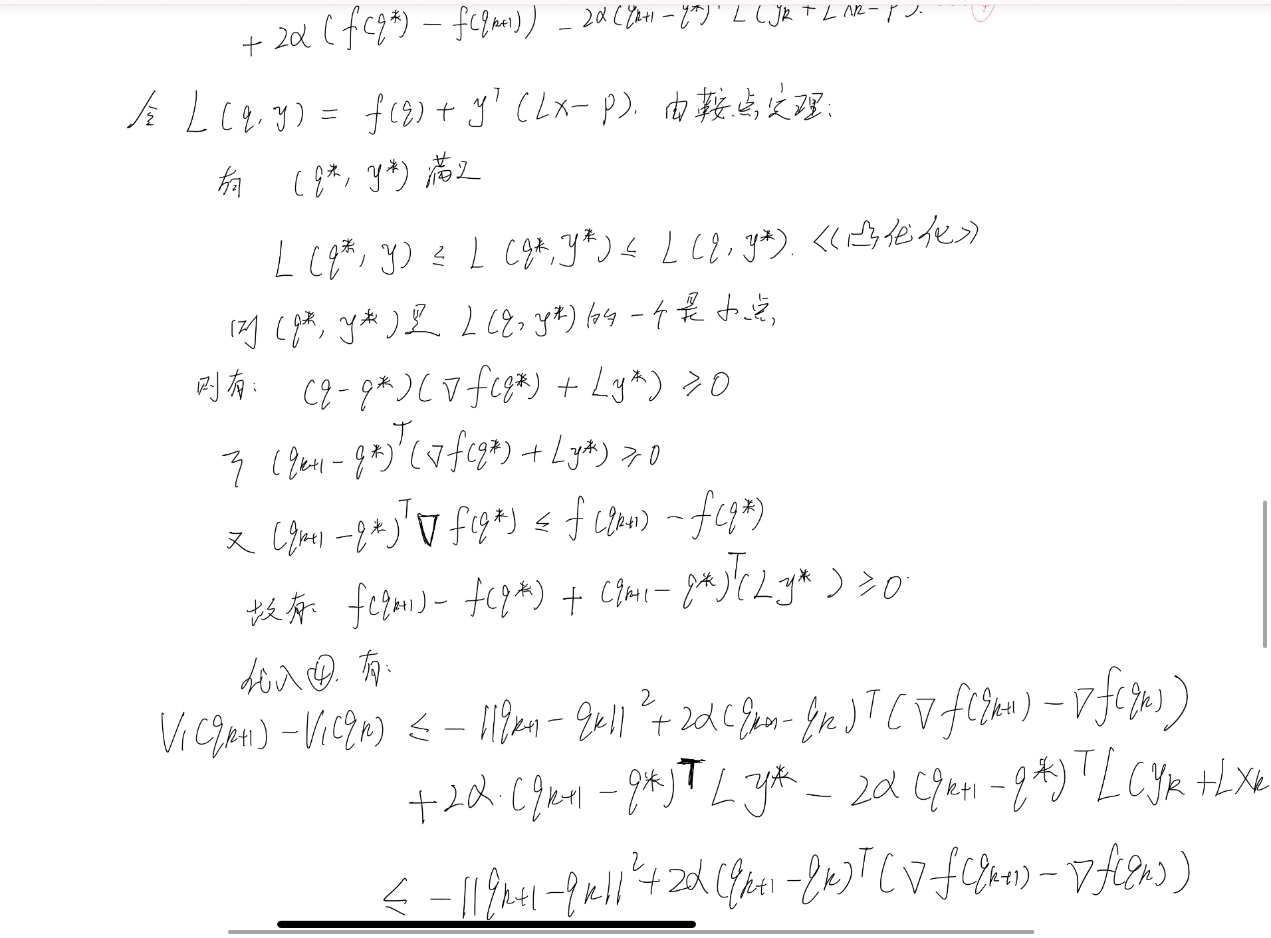 + 2α (f(q*) − f(q_{k+1})) − 2α (q_{k+1} − q*)ᵀ L (y_k + L x_k − p).
令 L(q, y) = f(q) + yᵀ (Lx − p). 由鞍点定理:
有 (q*, y*) 满足
L(q*, y) ≤ L(q*, y*) ≤ L(q, y*). 《凸优化》
则 (q*, y*) 是 L(q, y*) 的一个最小点,
则有: (q − q*)(∇f(q*) + Ly*) ≥ 0
(q_{k+1} − q*)ᵀ (∇f(q*) + Ly*) ≥ 0
又 (q_{k+1} − q*)ᵀ ∇f(q*) ≤ f(q_{k+1}) − f(q*)
故有: f(q_{k+1}) − f(q*) + (q_{k+1} − q*)ᵀ(Ly*) ≥ 0.
代入④. 有:
V₁(q_{k+1}) − V₁(q_k) ≤ − ||q_{k+1} − q_k||² + 2α (q_{k+1} − q_k)ᵀ (∇f(q_{k+1}) − ∇f(q_k))
+ 2α · (q_{k+1} − q*)ᵀ L y* − 2α (q_{k+1} − q*)ᵀ L (y_k + L x_k
≤ − ||q_{k+1} − q_k||² + 2α (q_{k+1} − q_k)ᵀ (∇f(q_{k+1}) − ∇f(q_k))